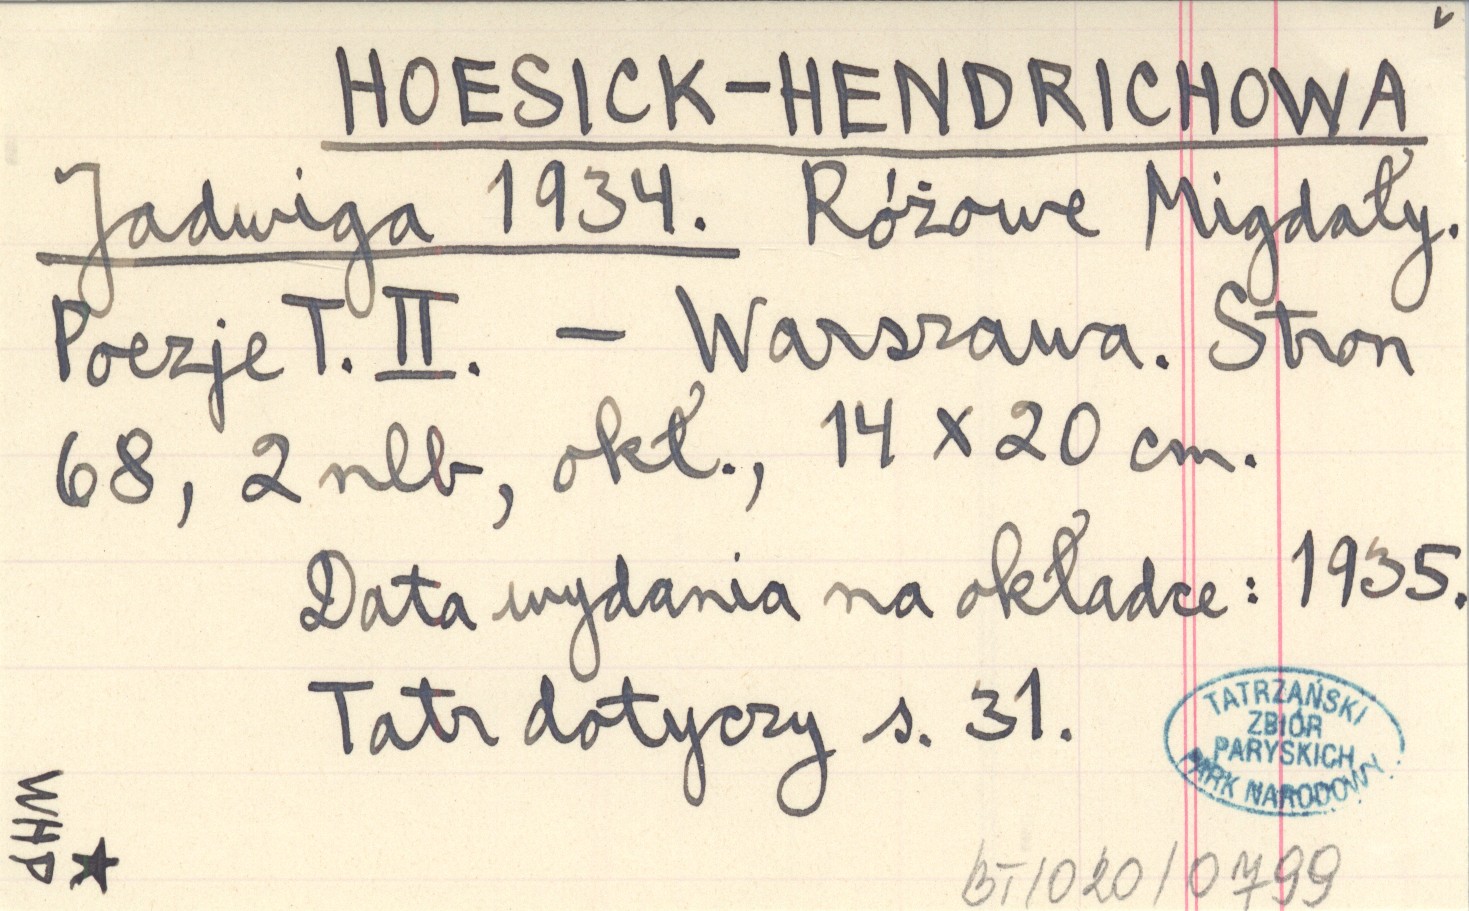 HOESICK-HENDRICHOWA
Jadwiga 1934. Różowe Migdały.
Poezje T. II. - Warszawa. Stron
68, 2 nlb, okł., 14 x 20 cm.
Data wydania na okładce: 1935.
Tatr dotyczy s. 31.
TATRZAŃSKI
ZBIÓR
PARYSKICH
PARK NARODOWY
WHP
BT/020/0799